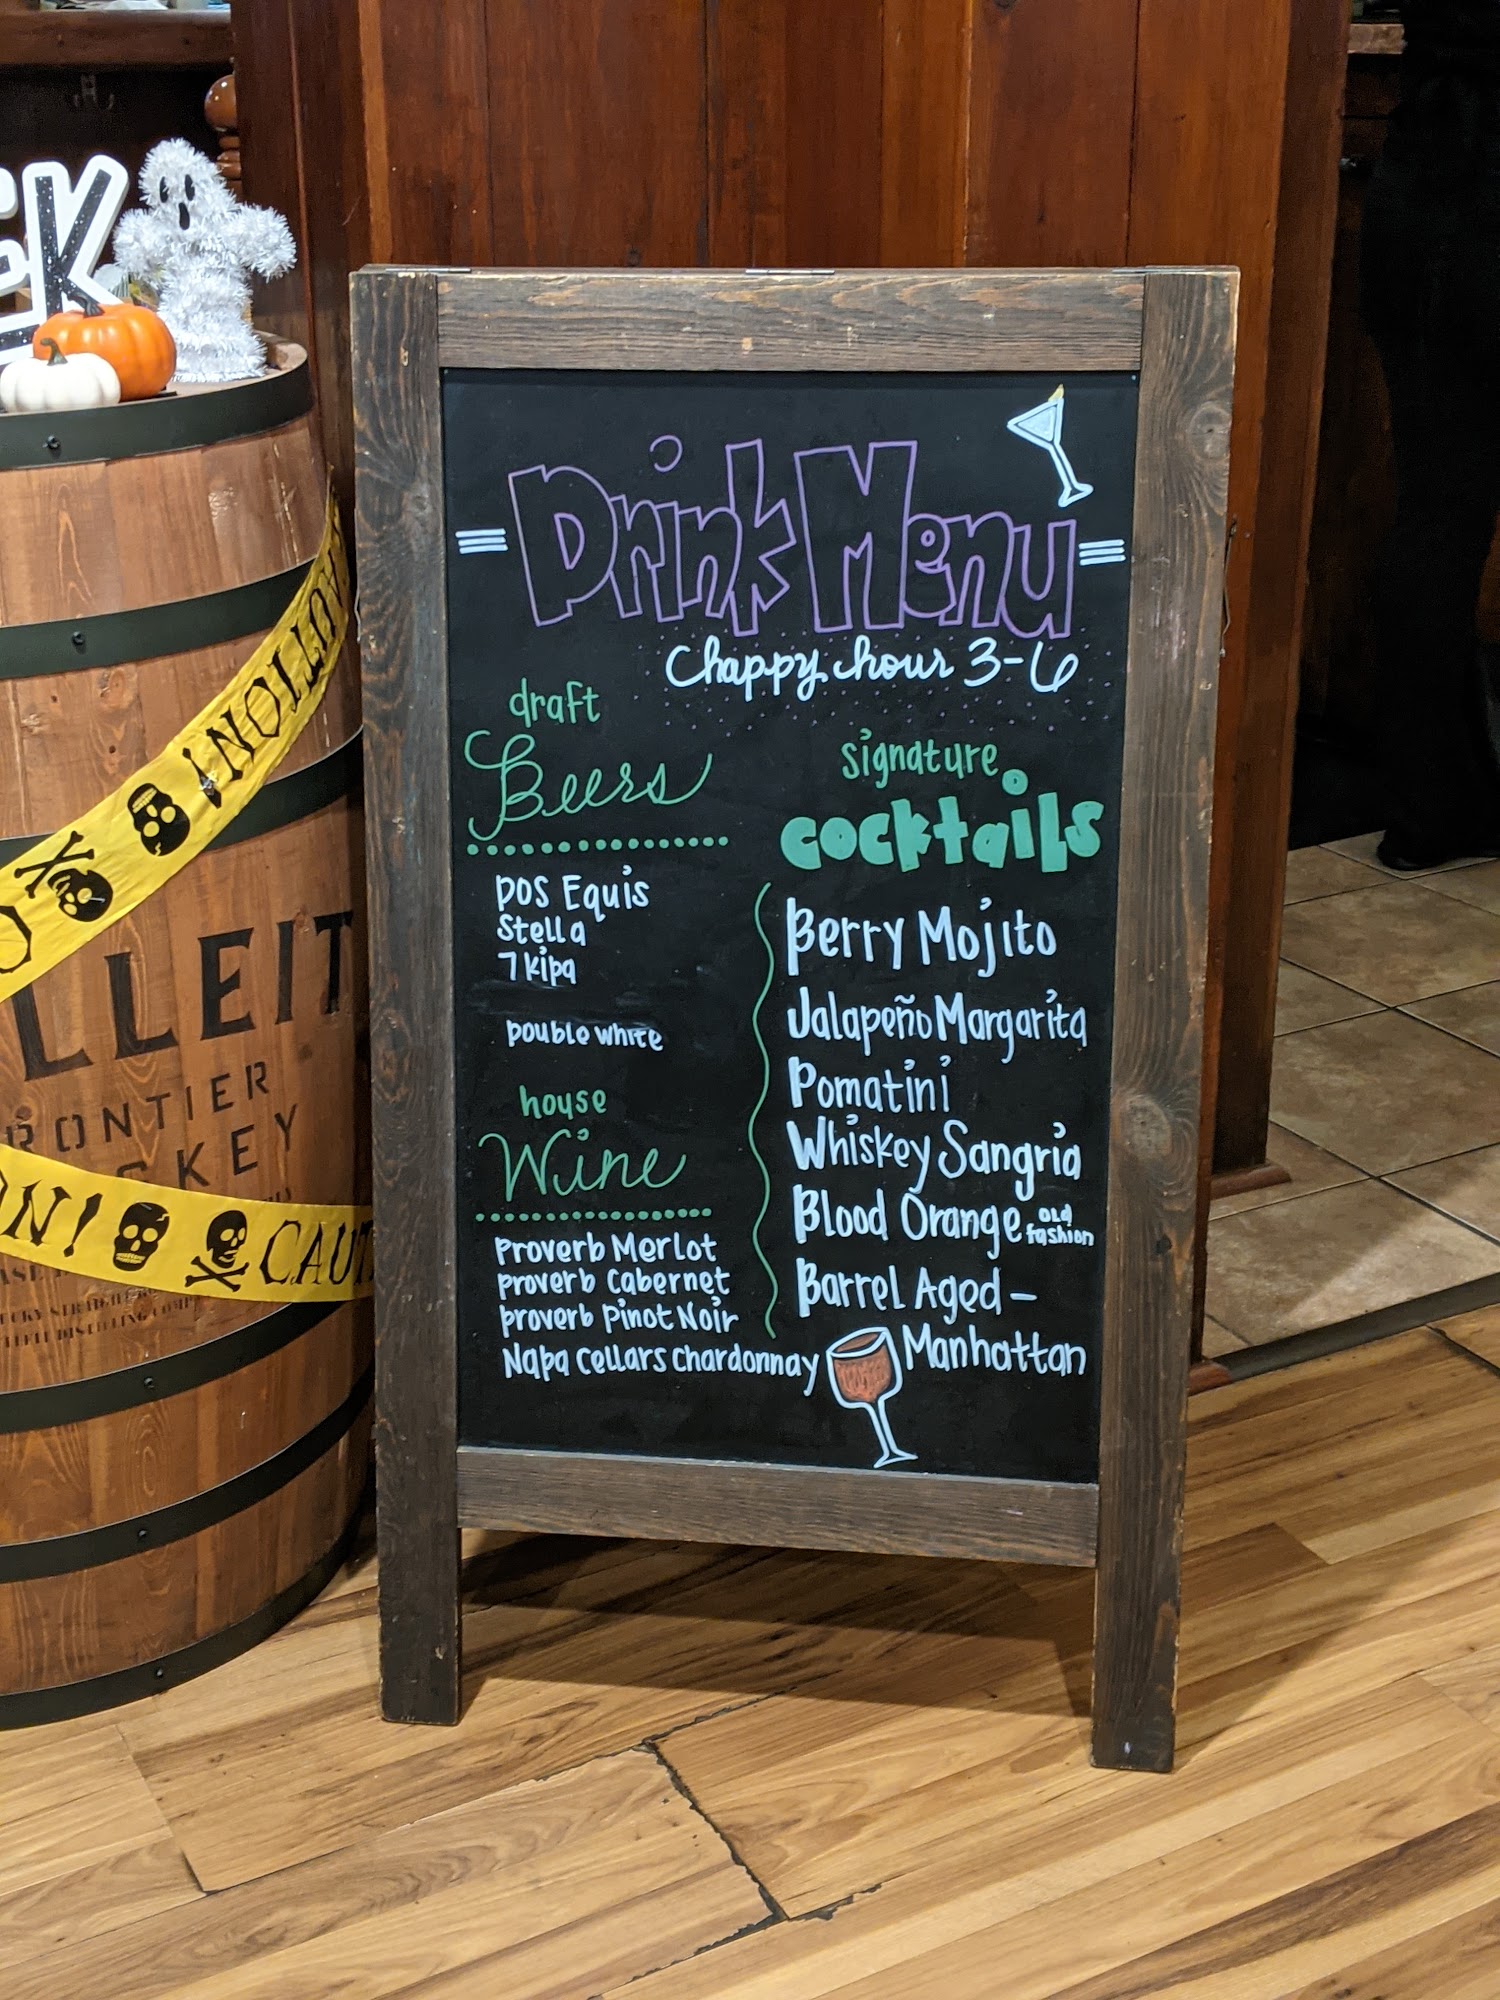 Drink Menu
happy hour 3-6
draft
Beers
Dos Equis
Stella
7 kipa
Double White
house
Wine
Proverb Merlot
Proverb Cabernet
Proverb Pinot Noir
Napa Cellars Chardonnay
signature
cocktails
Berry Mojito
Jalapeño Margarita
Pomatini
Whiskey Sangria
Blood Orange old fashion
Barrel Aged -
Manhattan
EEK
LLEIT
RONTIER
KEY
CAUT